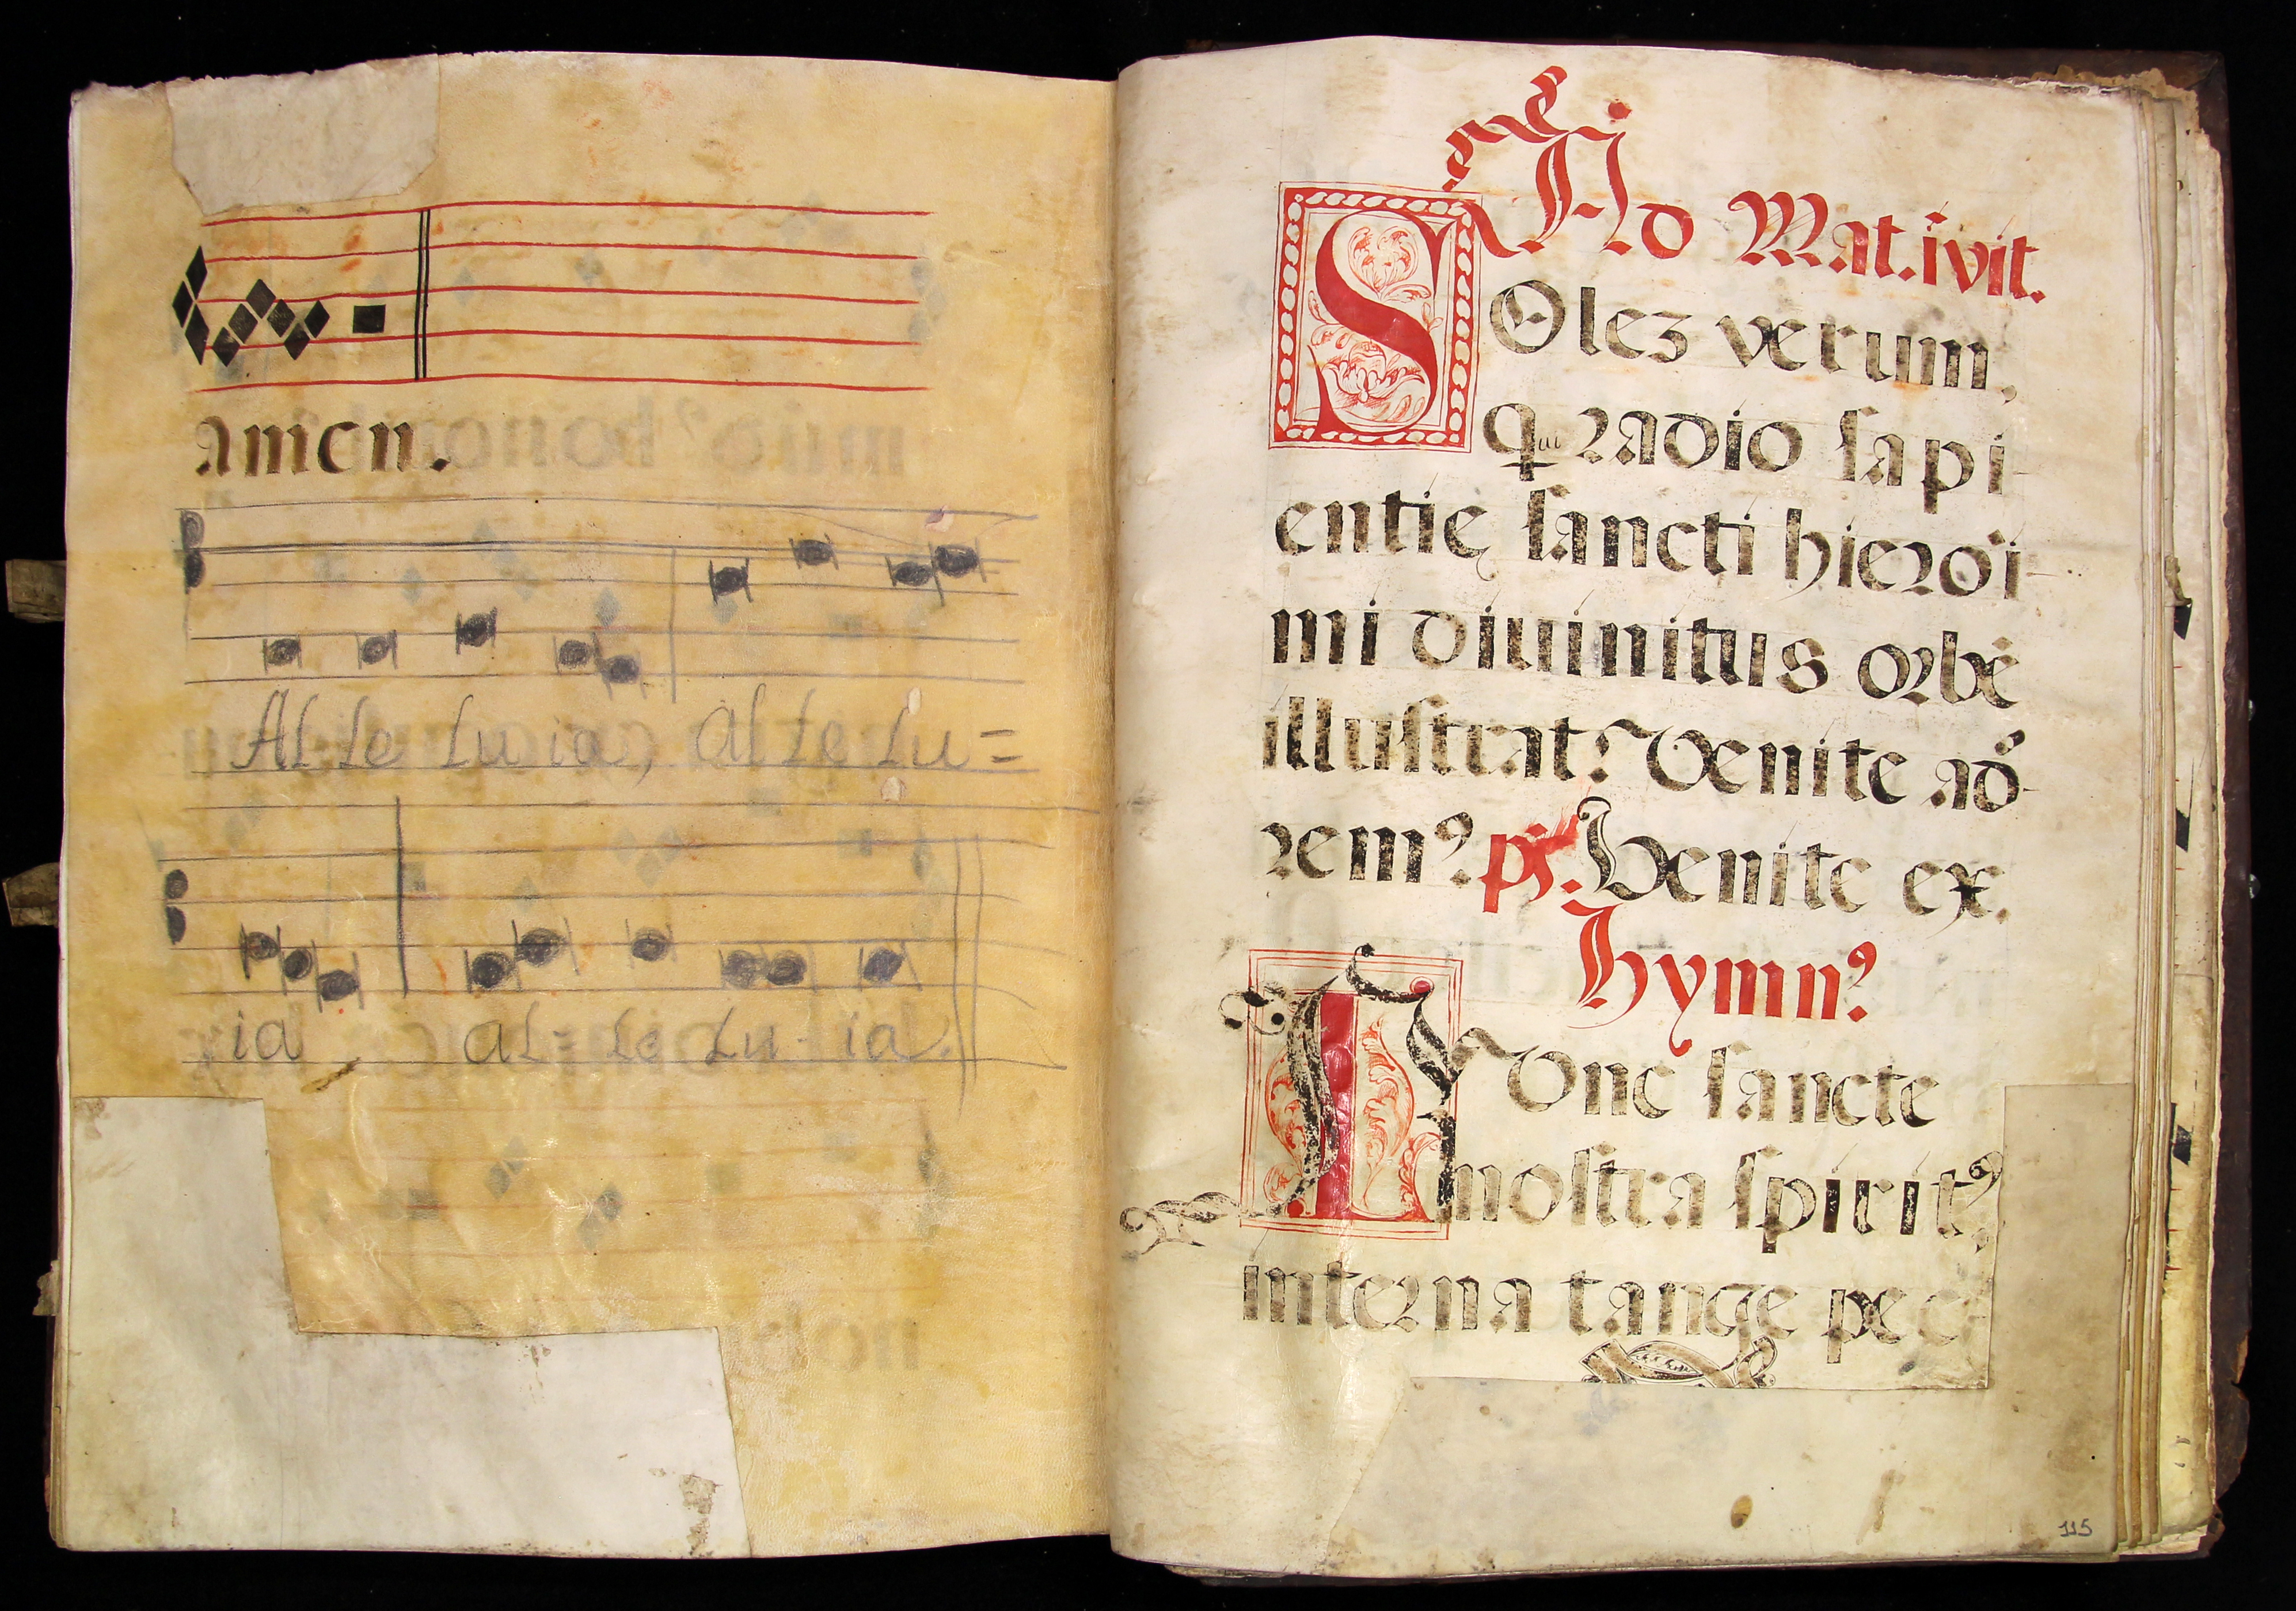 amen.
Al le lu ia, al le lu=
ia al= le lu- ia.
Ad Mat. ivit.
SOlez verum,
qui radio sapi-
entię sancti hieroi-
mi diuinitus orbē
illustrat: Venite ado-
remꝰ. ps. Venite ex.
Hymnꝰ.
NVnc sancte
nostra spiritꝰ,
interna tange pec
115